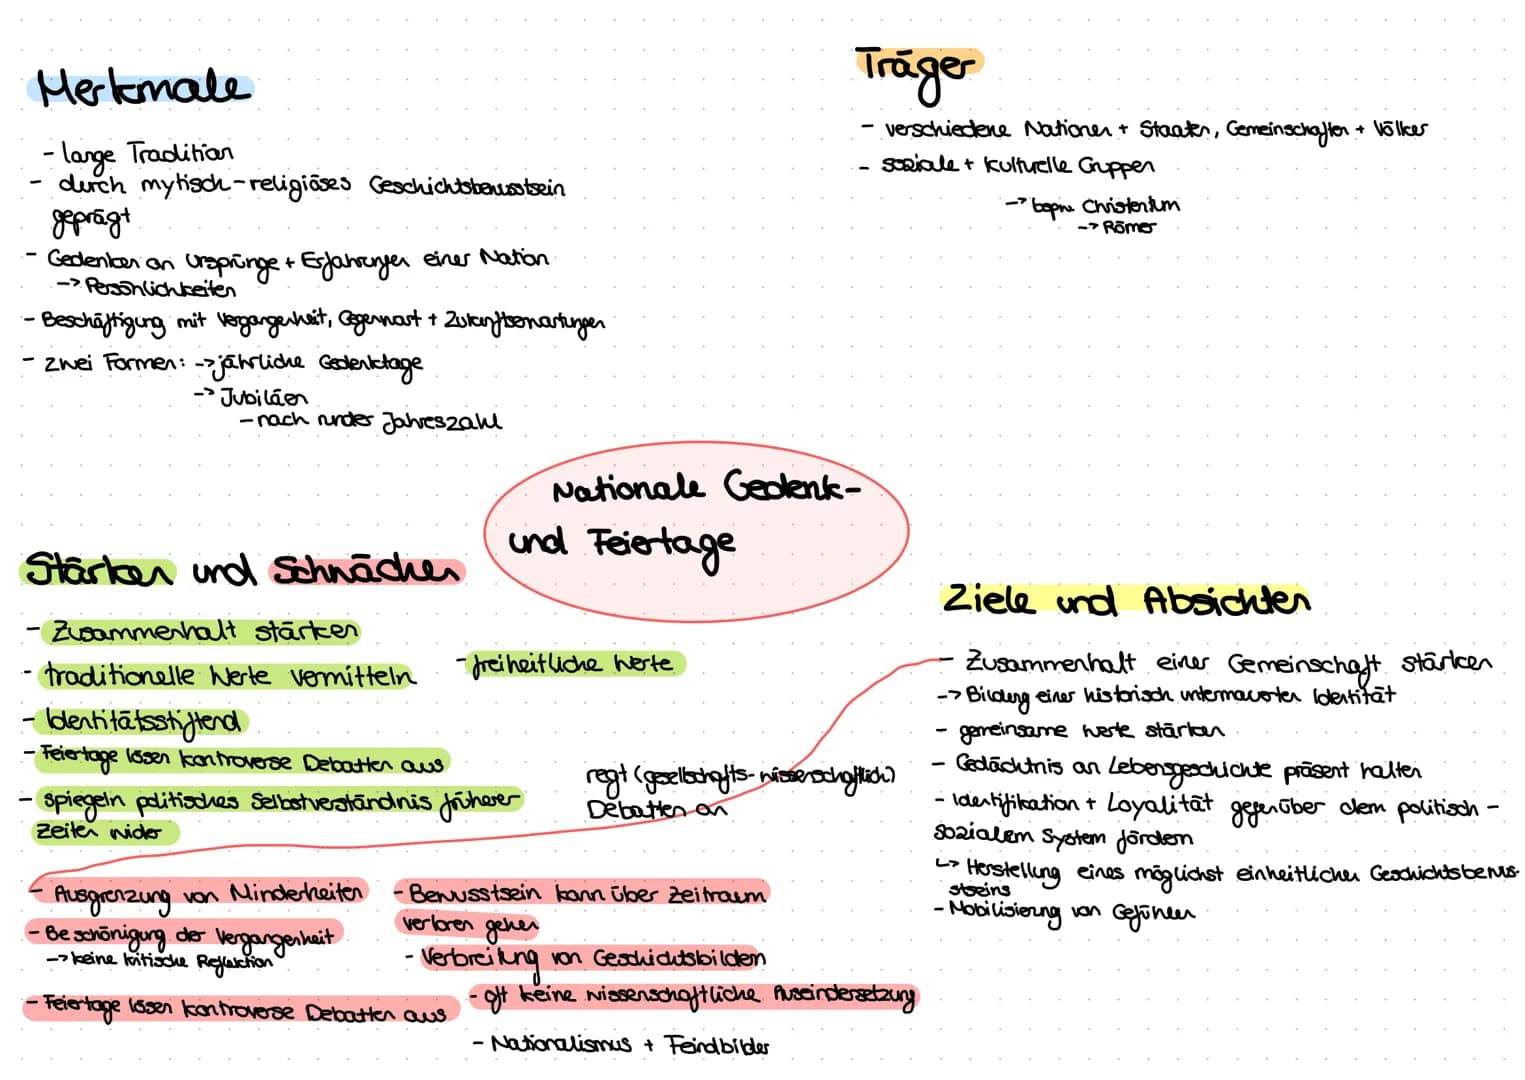 Merkmale
- lange Tradition
- durch mytisch-religiöses Geschichtsbewusstsein
geprägt
- Gedenken an Ursprünge + Erfahrungen einer Nation
-> Persönlichkeiten
- Beschäftigung mit Vergangenheit, Gegenwart + Zukunftserwartungen
- zwei Formen: -> jährliche Gedenktage
-> Jubiläen
- nach runder Jahreszahl
Träger
- verschiedene Nationen + Staaten, Gemeinschaften + Völker
- soziale + kulturelle Gruppen
-> Christentum
-> Römer
Nationale Gedenk-
und Feiertage
Stärken und Schwächen
- Zusammenhalt stärken
- traditionelle Werte vermitteln
- freiheitliche Werte
- Identitätsstiftend
- Feiertage lösen kontroverse Debatten aus
- spiegeln politisches Selbstverständnis früherer
Zeiten wider
regt (gesellschafts-wissenschaftlich)
Debatten an
- Ausgrenzung von Minderheiten
- Beschönigung der Vergangenheit
-> keine kritische Reflektion
- Feiertage lösen kontroverse Debatten aus
- Bewusstsein kann über Zeitraum
verloren gehen
- Verbreitung von Geschichtsbildern
- oft keine wissenschaftliche Auseindersetzung
- Nationalismus + Feindbilder
Ziele und Absichten
- Zusammenhalt einer Gemeinschaft stärken
-> Bildung einer historisch untermauerten Identität
- gemeinsame Werte stärken
- Gedächtnis an Lebensgeschichte präsent halten
- Identifikation + Loyalität gegenüber dem politisch-
sozialem System fördern
↳ Herstellung eines möglichst einheitlichen Geschichtsbewus-
stseins
- Mobilisierung von Gefühlen